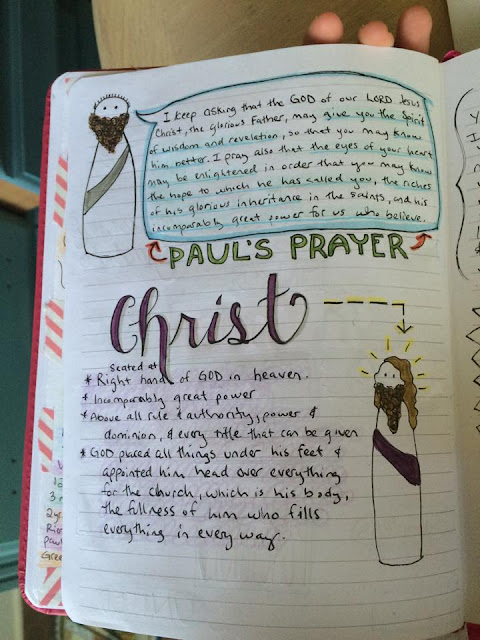 I keep asking that the GOD of our LORD Jesus
Christ, the glorious Father, may give you the Spirit
of wisdom and revelation, so that you may know
him better. I pray also that the eyes of your heart
may be enlightened in order that you may know
the hope to which he has called you, the riches
of his glorious inheritance in the saints, and his
incomparably great power for us who believe.
PAUL'S PRAYER
Christ
Seated at
* Right hand of GOD in heaven.
* Incomparably great power
* Above all rule & authority, power &
dominion, & every title that can be given
* GOD placed all things under his feet &
appointed him head over everything
for the church, which is his body,
the fullness of him who fills
everything in every way.